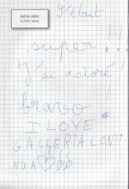 C'était
super...
J'ai adoré!
bravo!
I LOVE
GALLERIA CONTI
NUA